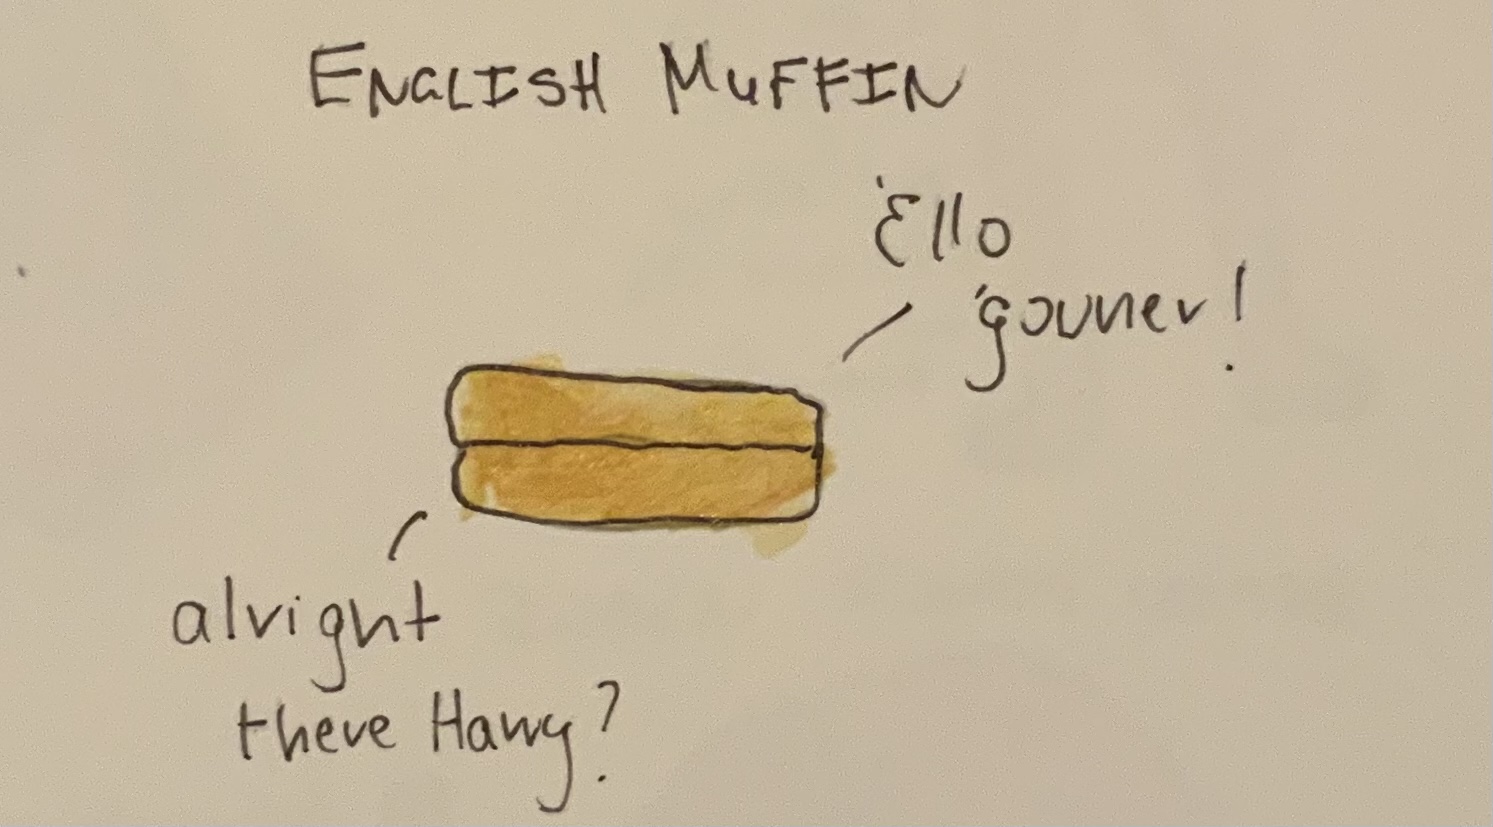 ENGLISH MUFFIN
'Ello
'gouner!
alright
there Harry?